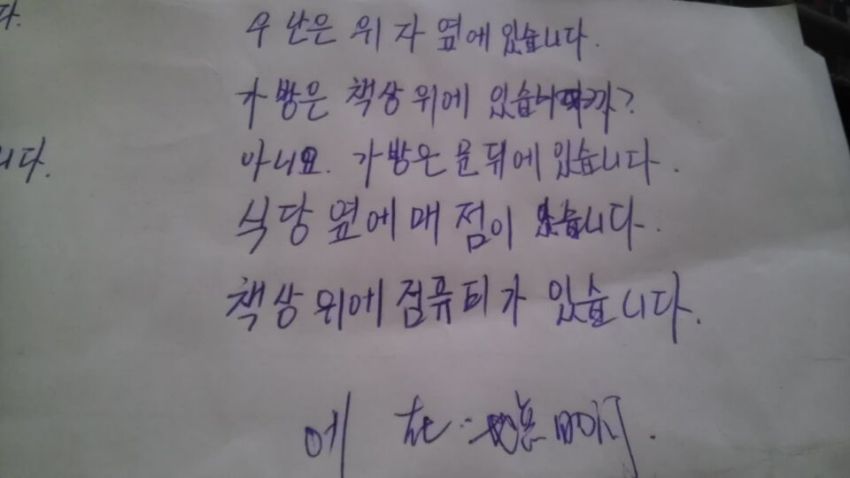 다.
우산은 위자 옆에 있습니다.
가방은 책상 위에 있습니까?
니다.
아니요. 가방은 문뒤에 있습니다.
식당 옆에 매점이 있습니다.
책상 위에 점퓨터가 있습니다.
에 在